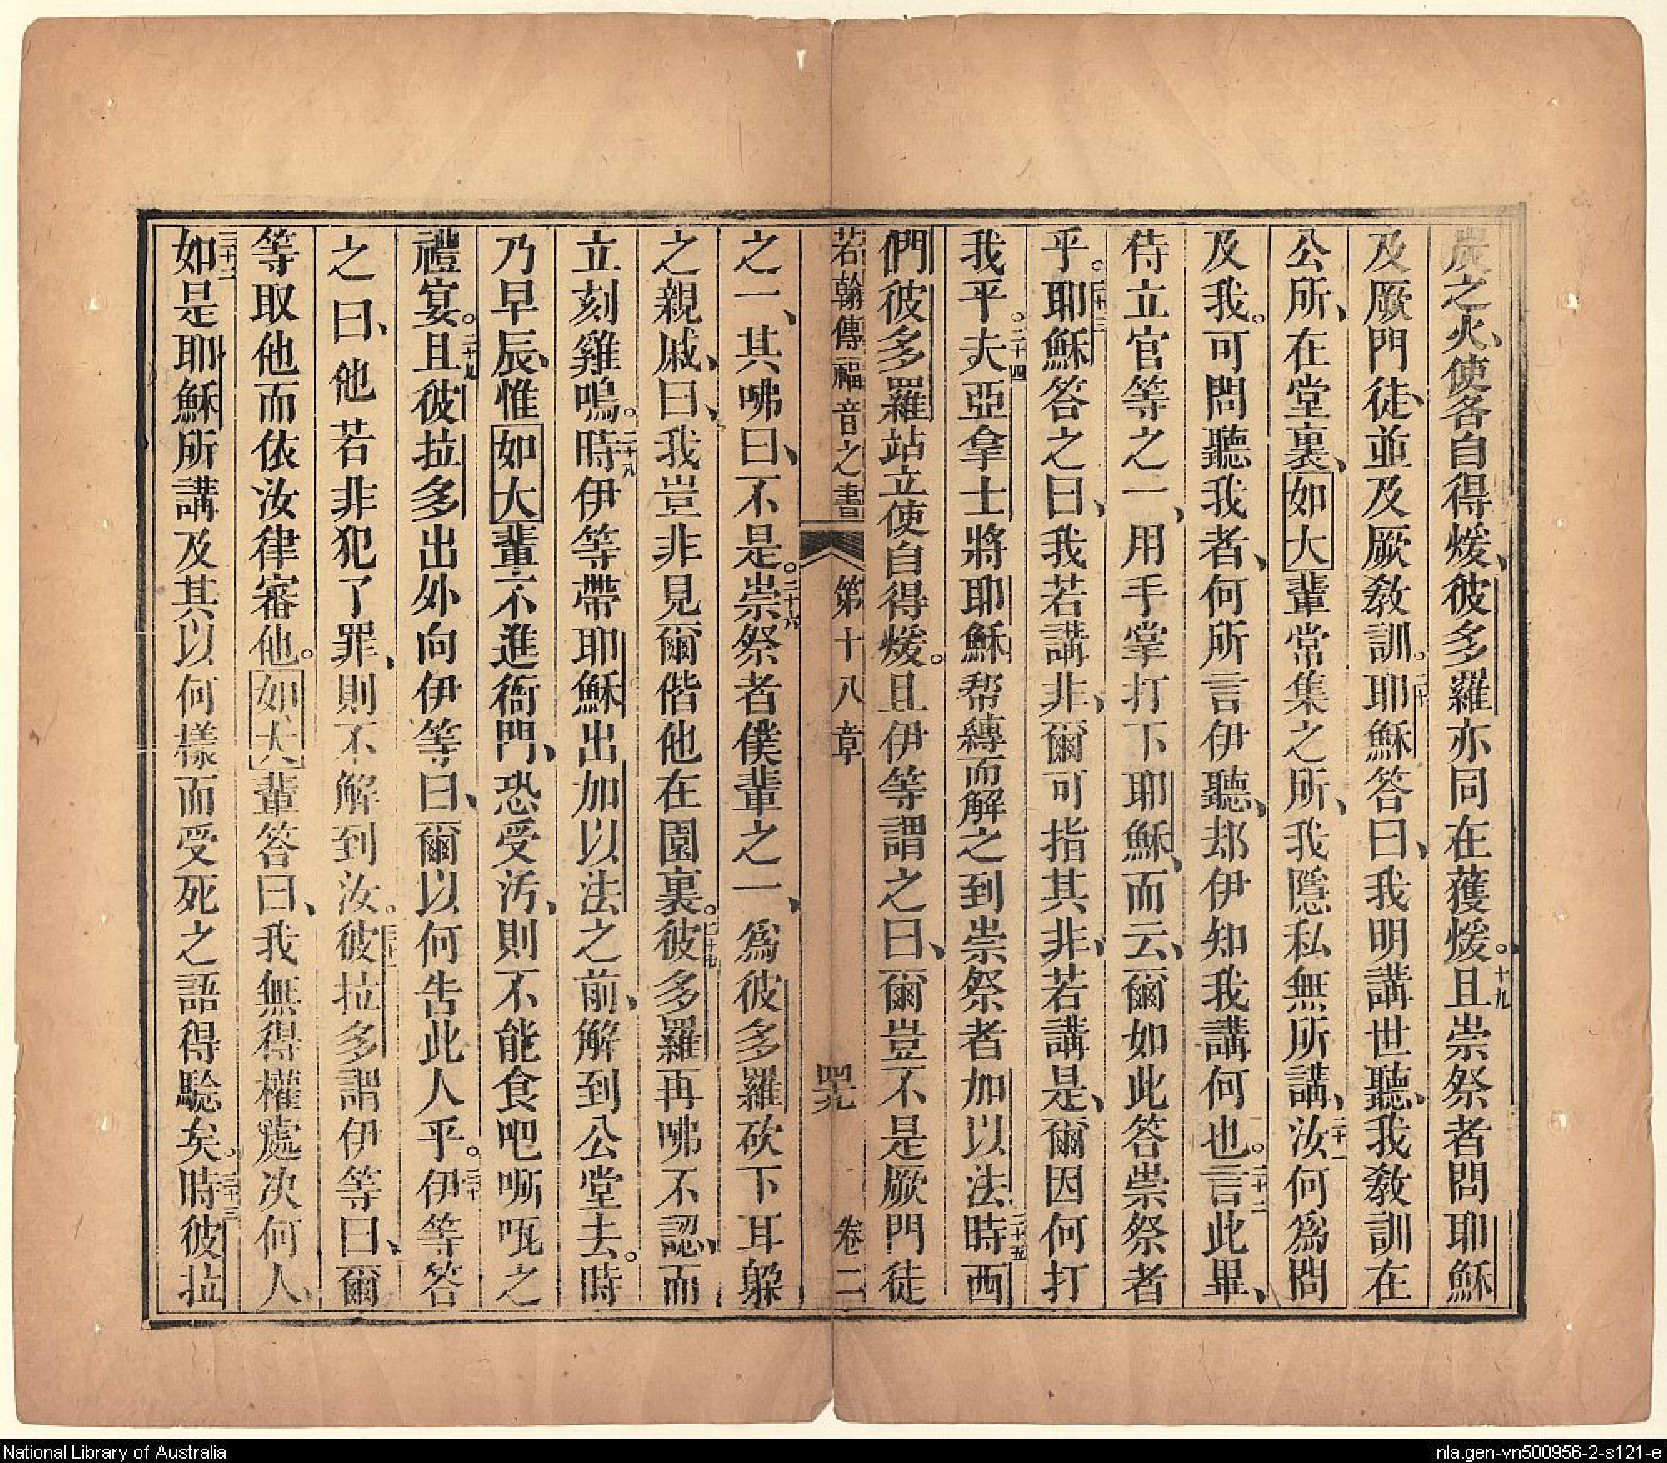 炭之火、使各自得煖、彼多羅亦同在獲煖。十九且崇祭者問耶穌
及厥門徒、並及厥教訓。二十耶穌答曰、我明講世聽、我教訓在
公所、在堂裏、如大輩常集之所、我隱私無所講、二十一汝何為問
及我。可問聽我者、何所言伊聽、却伊知我講何也。二十二言此畢、
侍立官等之一、用手掌打下耶穌、而云、爾如此答崇祭者
乎。二十三耶穌答之曰、我若講非、爾可指其非、若講是、爾因何打
我乎。二十四夫亞拿士將耶穌帮縛而解之到崇祭者加以法二十五時西
們彼多羅站立使自得煖。且伊等謂之曰、爾豈不是厥門徒
若翰傳福音之書 第十八章 四九 卷二
之一、其咈曰、不是。二十六崇祭者僕輩之一、為彼多羅砍下耳躲
之親戚、曰、我豈非見爾偕他在園裏。二十七彼多羅再咈不認、而
立刻雞鳴。二十八時伊等帶耶穌出加以法之前、解到公堂去。時
乃早辰、惟如大輩不進衙門、恐受汚、則不能食吧嘶呱之
禮宴。二十九且彼拉多出外向伊等曰、爾以何告此人乎。三十伊等答
之曰、他若非犯了罪、則不解到汝。三十一彼拉多謂伊等曰、爾
等取他而依汝律審他。如大輩答曰、我無得權處决何人、
三十二如是耶穌所講及其以何樣而受死之語得驗矣。三十三時彼拉
National Library of Australia
nla.gen-vn500956-2-s121-e